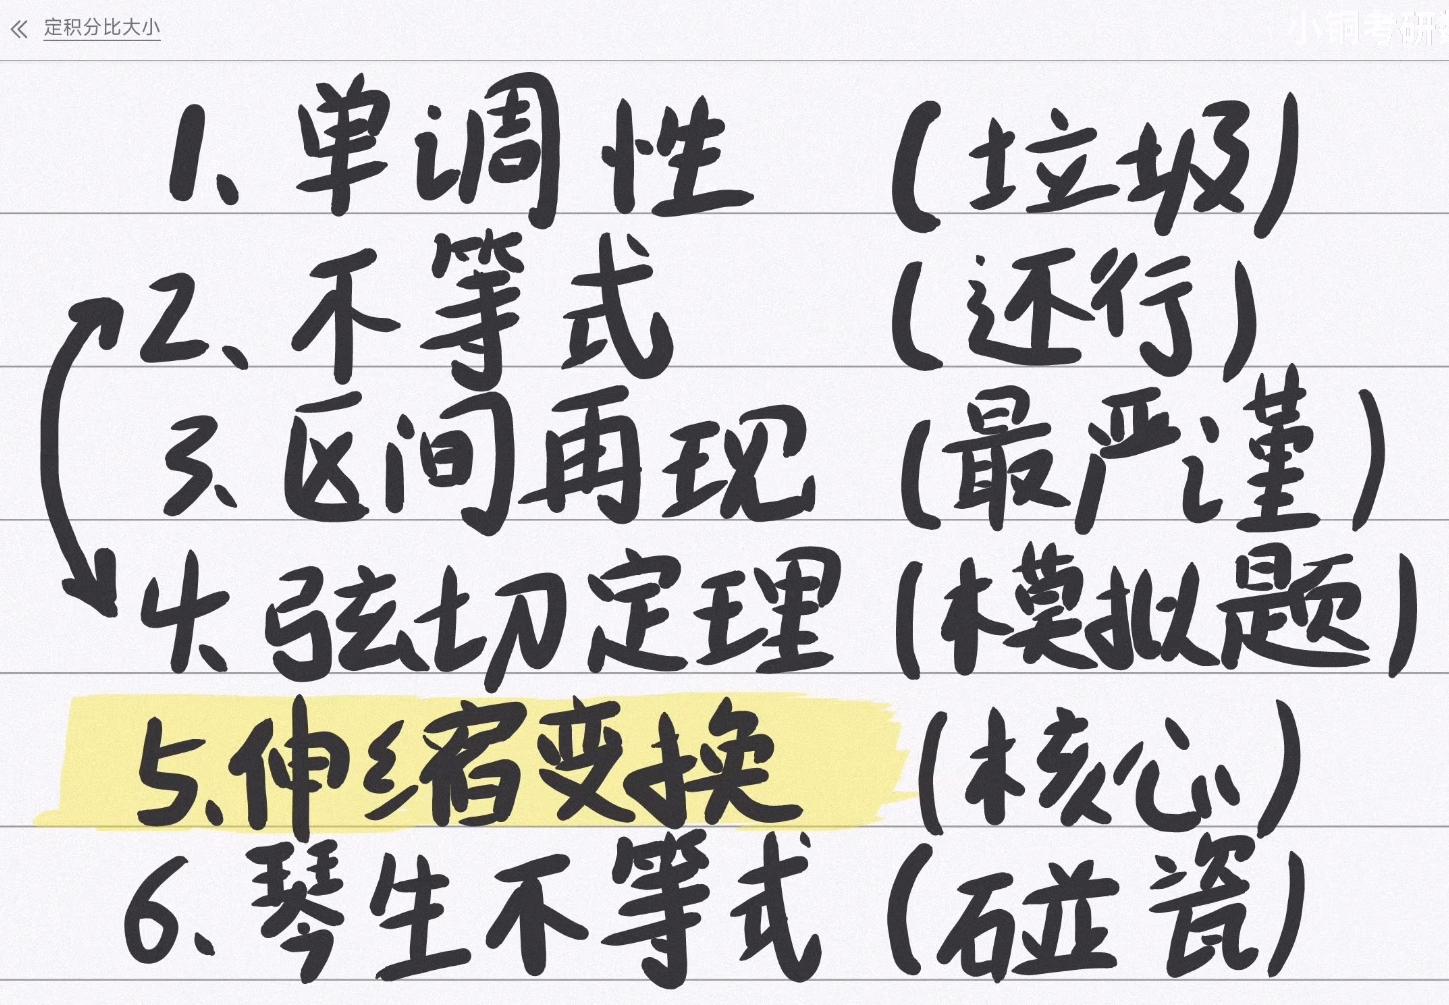 定积分比大小
小铜考研
1、单调性 (垃圾)
2、不等式 (还行)
3、区间再现 (最严谨)
4、弦切定理 (模拟题)
5、伸缩变换 (核心)
6、琴生不等式 (碰瓷)